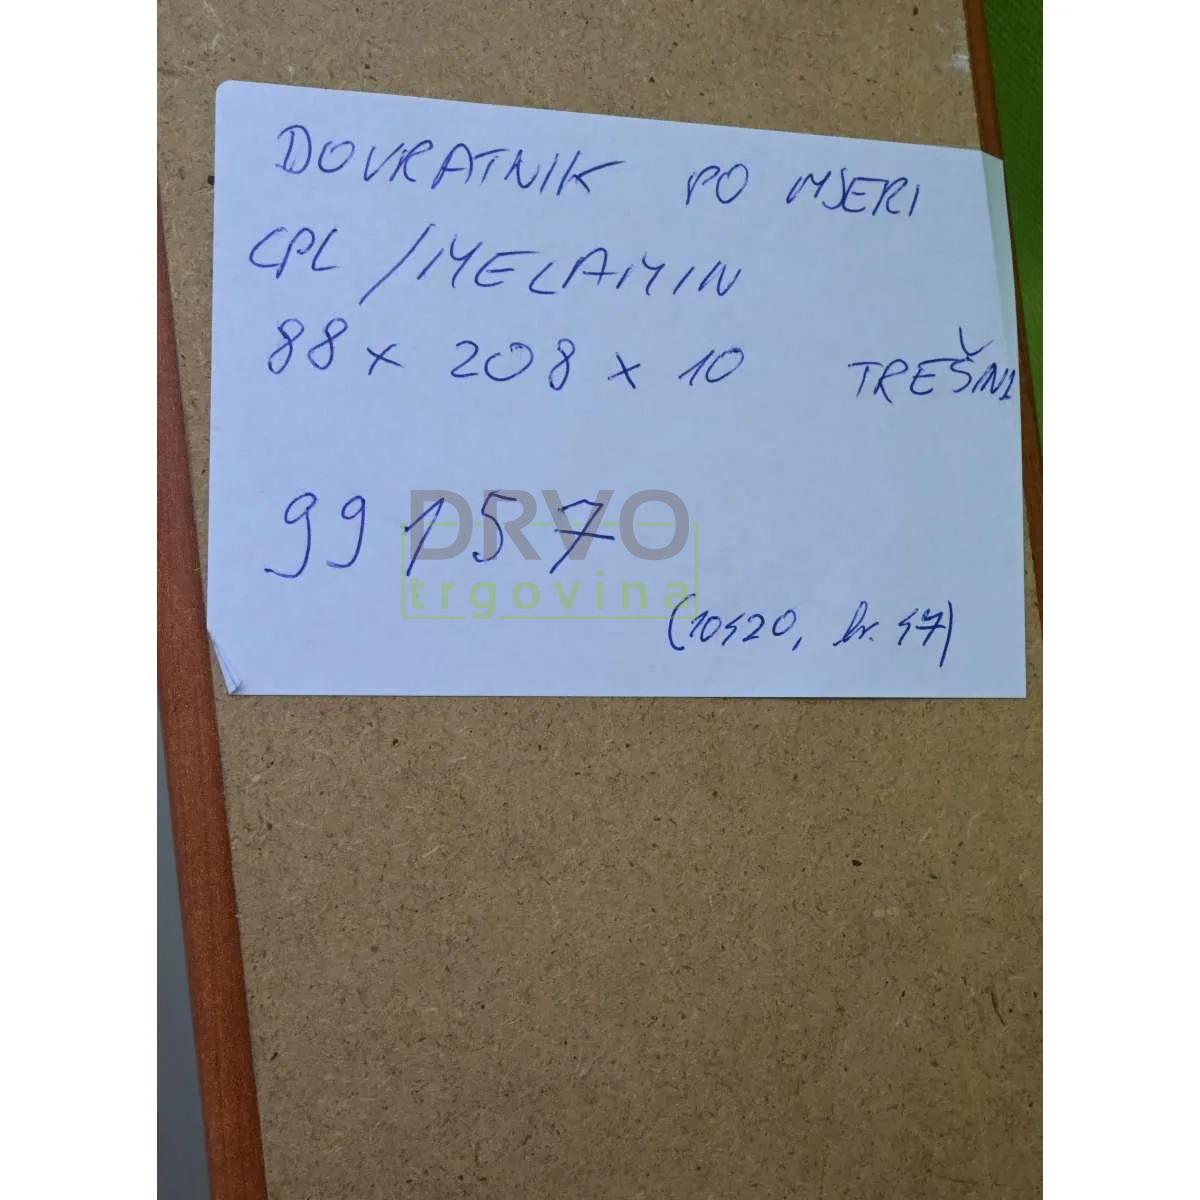 DOVRATNIK PO MJERI
CPL / MELAMIN
88 x 208 x 10 TREŠNJ
99157
DRVO
trgovina
(10420, br. 47)